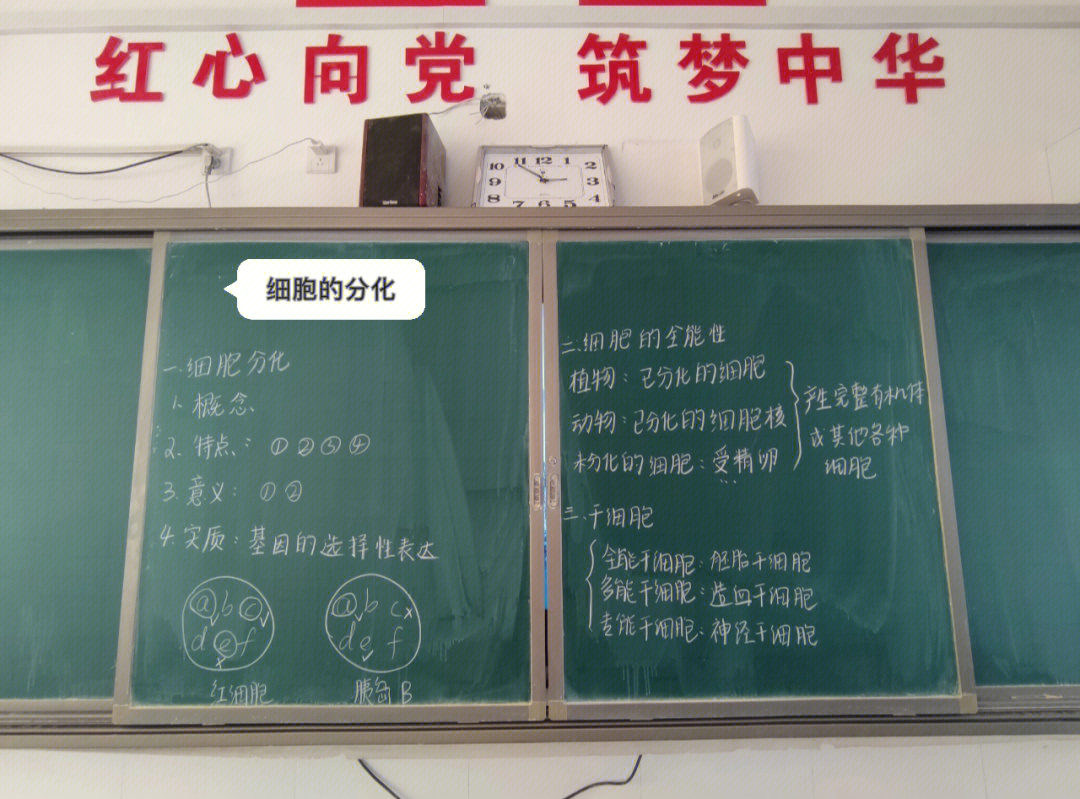 红心向党 筑梦中华
11 12 1
10 2
9 3
8 4
7 6 5
细胞的分化
一.细胞分化
1.概念
2.特点:①②③④
3.意义:①②
4.实质:基因的选择性表达
a b c
d e f
红细胞
a b c
d e f
胰岛B
二.细胞的全能性
植物:已分化的细胞
动物:已分化的细胞核
未分化的细胞:受精卵
产生完整有机体
或其他各种
细胞
三.干细胞
全能干细胞:胚胎干细胞
多能干细胞:造血干细胞
专能干细胞:神经干细胞